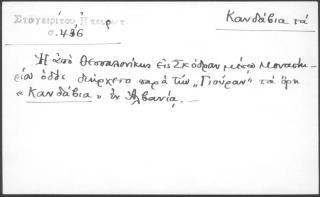 Σταγειρίτου, Ἠπειρωτ. Κανδάβια τά
σ. 436
Ἡ ἀπό Θεσσαλονίκης εἰς Σκόδραν μέσῳ Μοναστη-
ρίου ὁδός διήρχετο παρά τῶν „Γιούραν" τά ὄρη
« Κανδάβια » ἐν Ἀλβανίᾳ. —